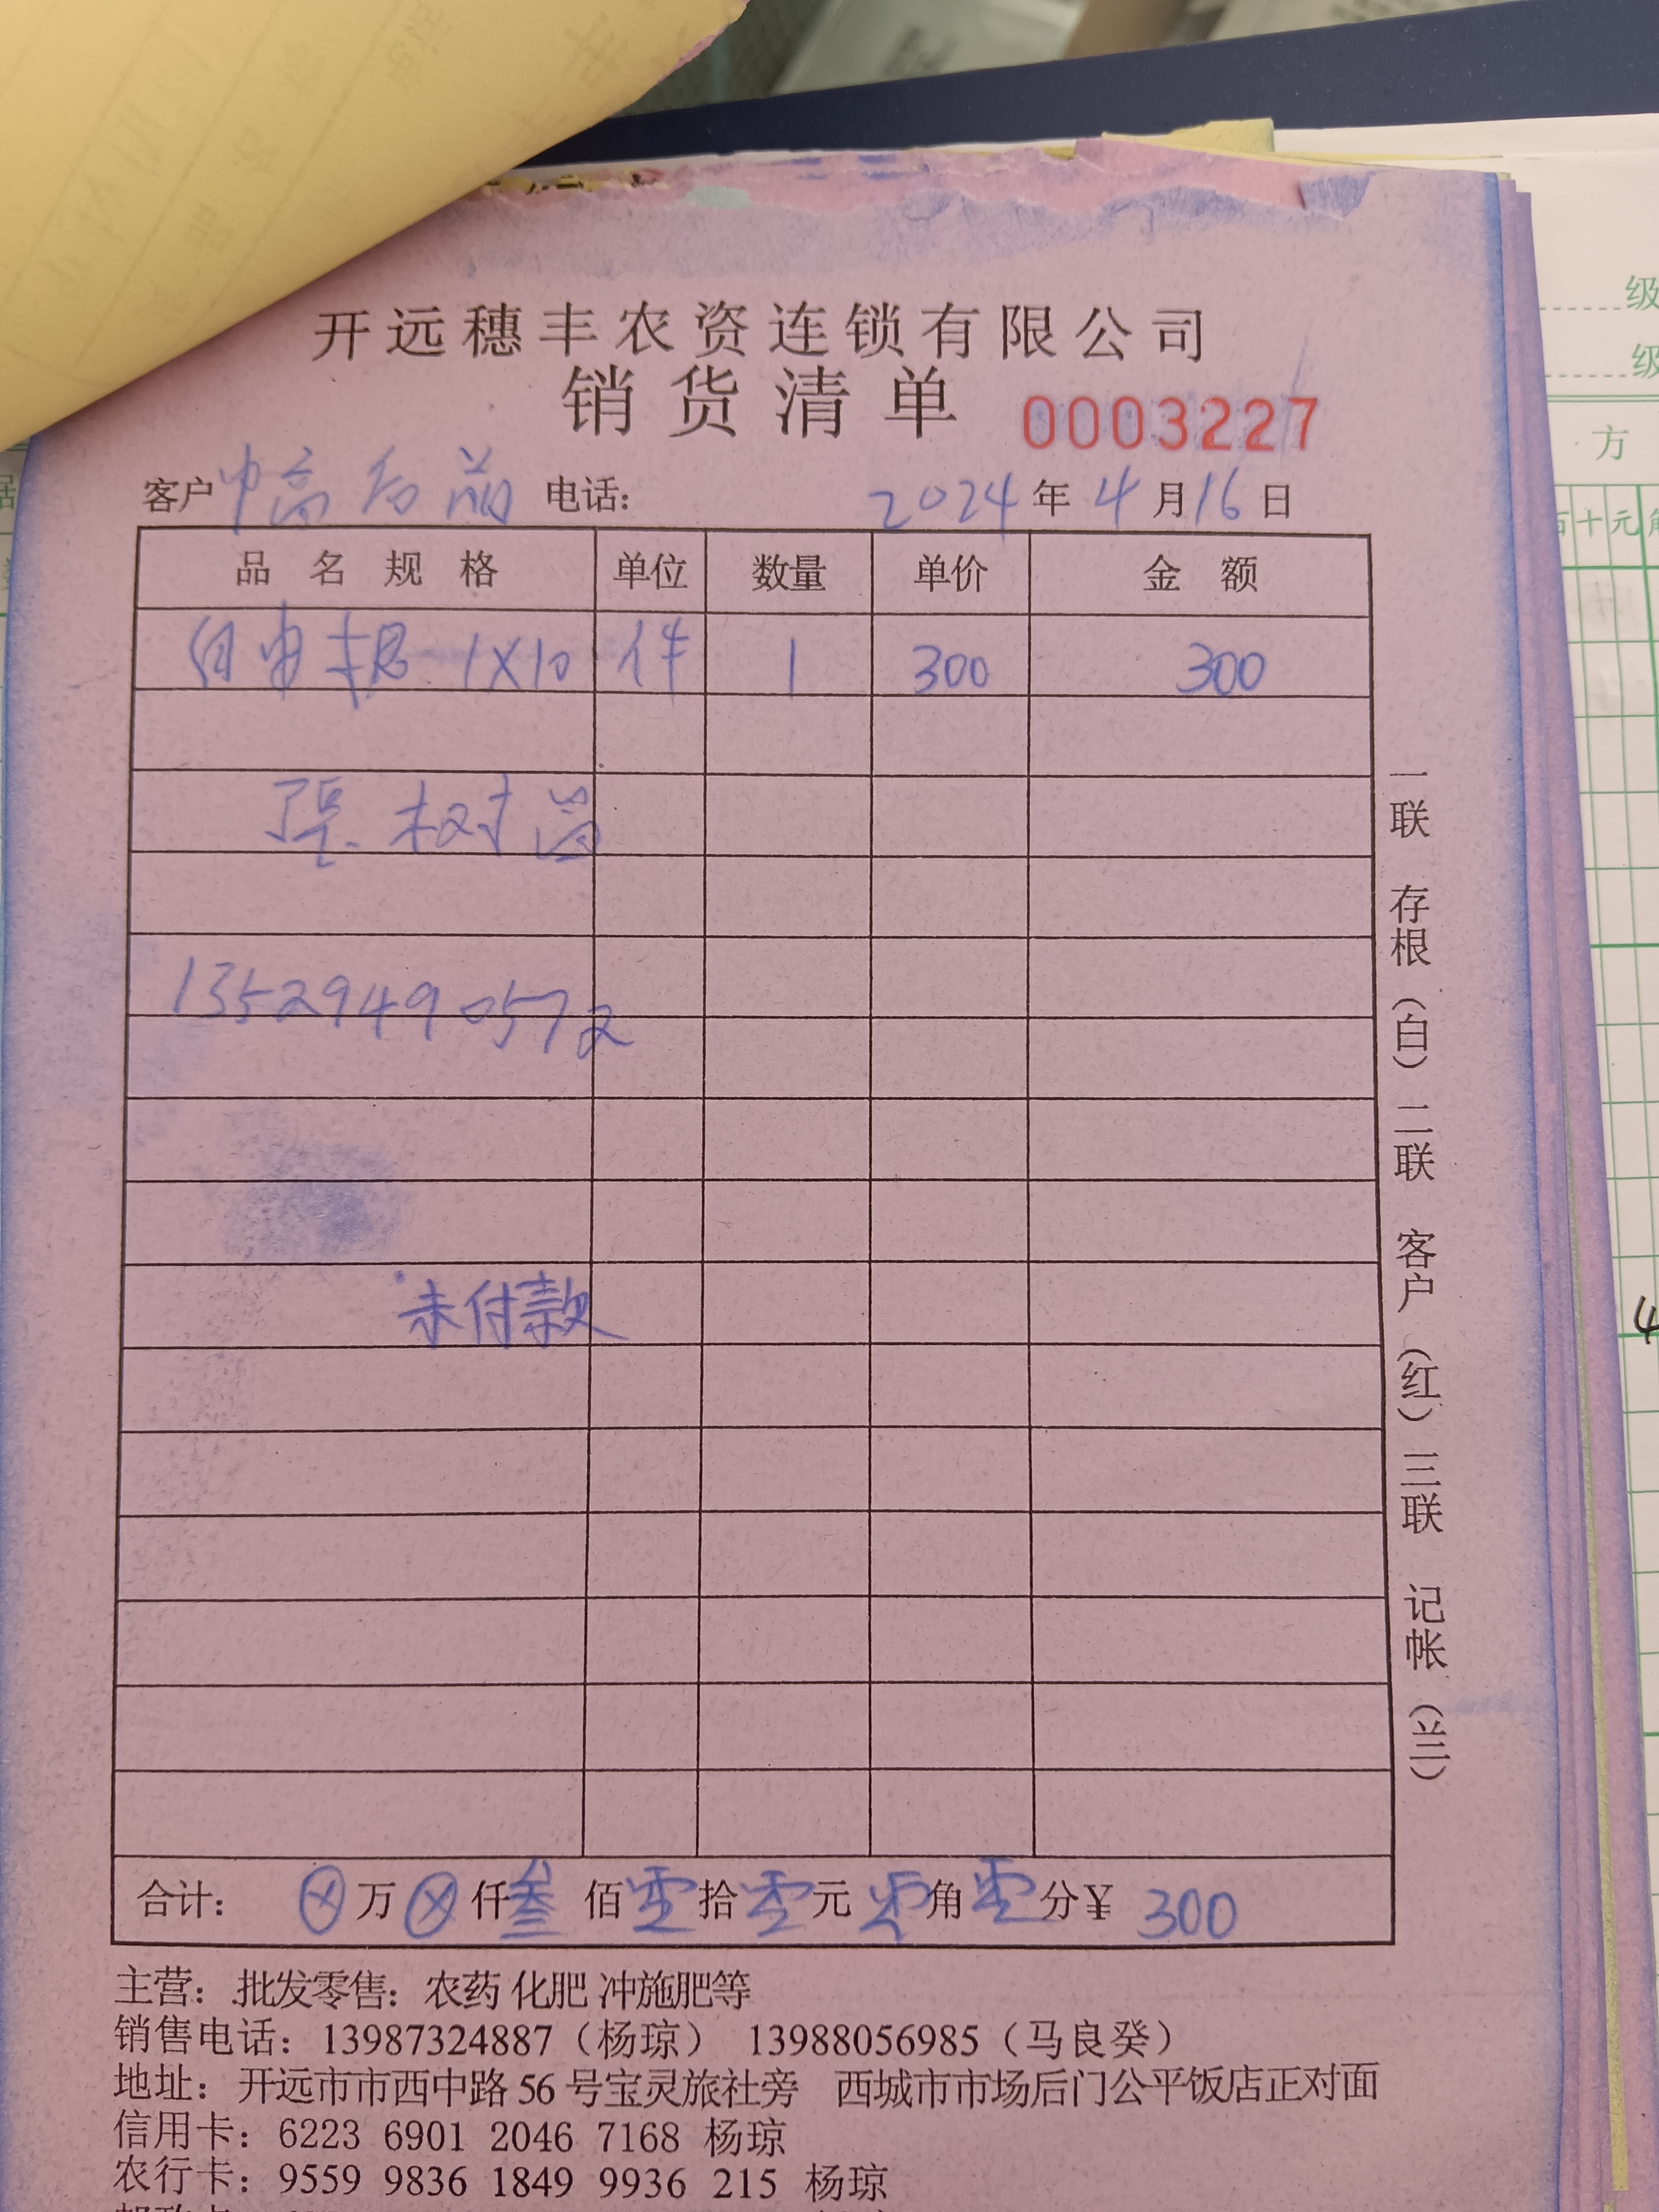 开远穗丰农资连锁有限公司
销货清单 0003227
客户 电话： 2024年4月16日
品名规格 单位 数量 单价 金额
自由根 1X10 件 1 300 300
张树
13529490572
未付款
合计： ⊗万⊗仟叁佰零拾零元零角零分¥ 300
一联 存根（白）二联 客户（红）三联 记帐（兰）
主营：批发零售：农药 化肥 冲施肥等
销售电话：13987324887（杨琼） 13988056985（马良癸）
地址：开远市市西中路56号宝灵旅社旁 西城市市场后门公平饭店正对面
信用卡：6223 6901 2046 7168 杨琼
农行卡：9559 9836 1849 9936 215 杨琼
级
级
方
百十元
4